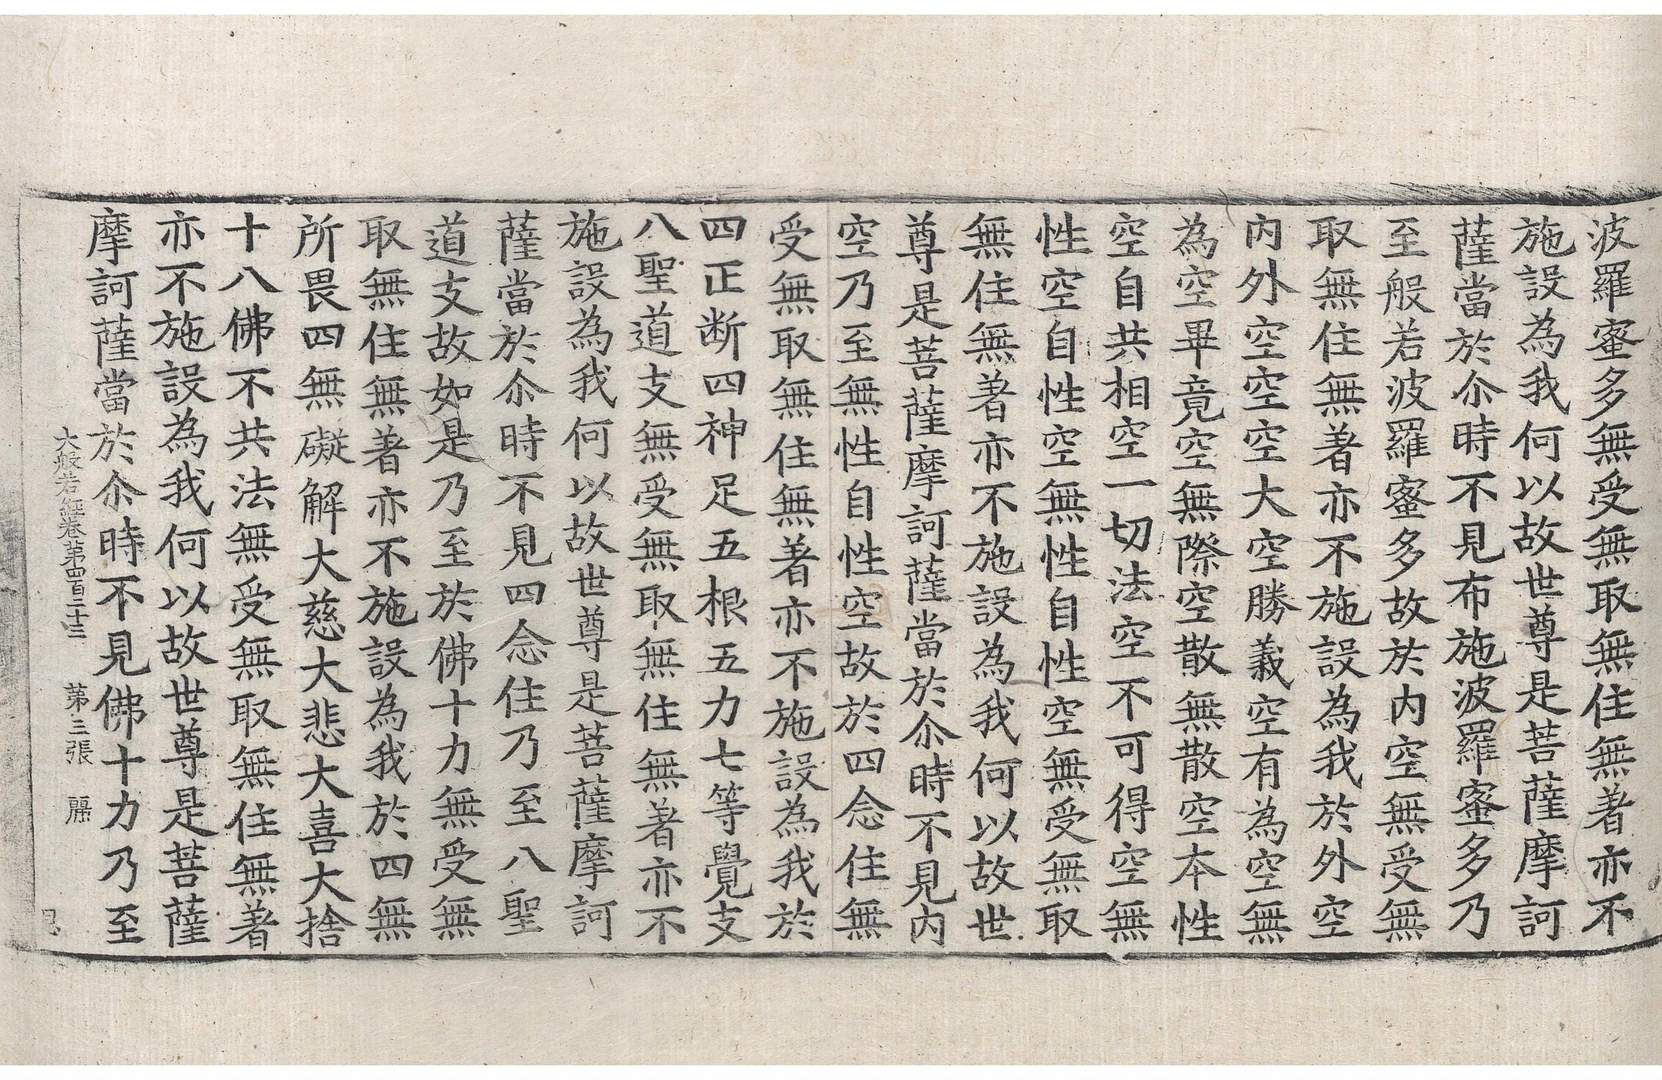 波羅蜜多無受無取無住無著亦不
施設為我何以故世尊是菩薩摩訶
薩當於尒時不見布施波羅蜜多乃
至般若波羅蜜多故於内空無受無
取無住無著亦不施設為我於外空
内外空空空大空勝義空有為空無
為空畢竟空無際空散無散空本性
空自共相空一切法空不可得空無
性空自性空無性自性空無受無取
無住無著亦不施設為我何以故世
尊是菩薩摩訶薩當於尒時不見内
空乃至無性自性空故於四念住無
受無取無住無著亦不施設為我於
四正断四神足五根五力七等覺支
八聖道支無受無取無住無著亦不
施設為我何以故世尊是菩薩摩訶
薩當於尒時不見四念住乃至八聖
道支故如是乃至於佛十力無受無
取無住無著亦不施設為我於四無
所畏四無礙解大慈大悲大喜大捨
十八佛不共法無受無取無住無著
亦不施設為我何以故世尊是菩薩
摩訶薩當於尒時不見佛十力乃至
大般若經卷第四百二十三　第三張　麗